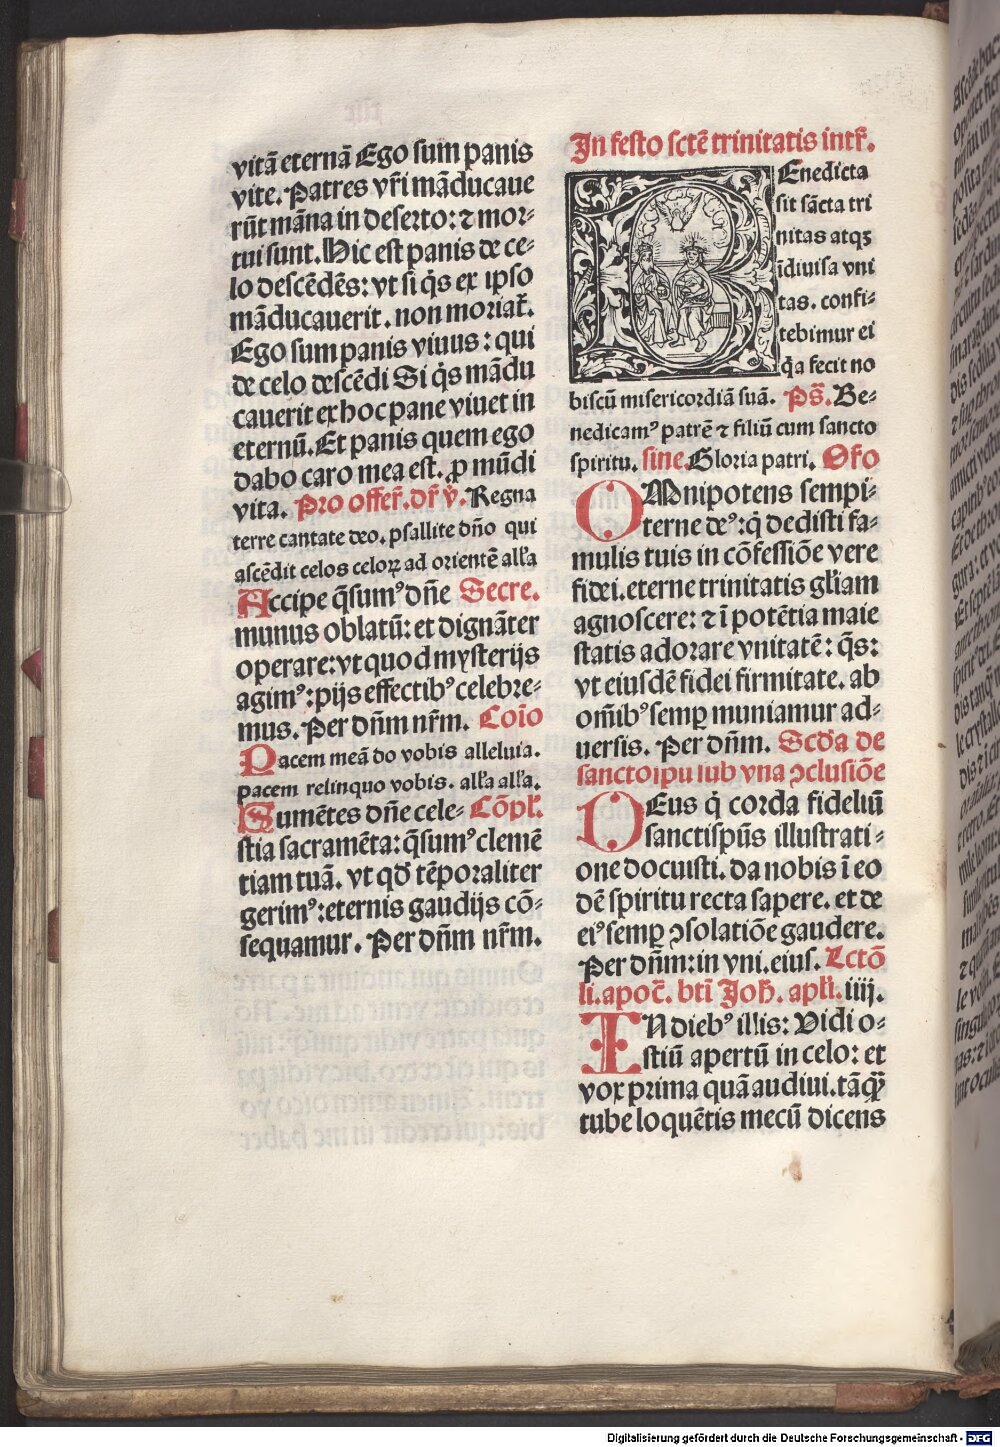 vitā eternā Ego sum panis
vite. Patres vr̄i māducaue
rūt māna in deserto: ⁊ mor⸗
tui sunt. Hic est panis de ce⸗
lo descēdēs: vt si q̄s ex ipso
māducauerit. non moriat᷑.
Ego sum panis viuus: qui
de celo descēdi Si q̄s mādu
cauerit ex hoc pane viuet in
eternū. Et panis quem ego
dabo caro mea est. ꝓ mūdi
vita. Pro offer̄. dr̄ v̄. Regna
terre cantate deo. psallite dn̄o qui
ascēdit celos celoꝝ ad orientē all'a
Accipe q̄sumꝰ dn̄e Secre.
munus oblatū: et dignāter
operare: vt quod mysterijs
agimꝰ: pijs effectibꝰ celebre⸗
mus. Per dn̄m nr̄m. Coīo
Pacem meā do vobis alleluia.
pacem relinquo vobis. all'a all'a.
Sumētes dn̄e cele⸗ Cōpl'.
stia sacramēta: q̄sumꝰ clemē
tiam tuā. vt qd̄ tēporaliter
gerimꝰ: eternis gaudijs cō⸗
sequamur. Per dn̄m nr̄m.
In festo sctē trinitatis intr̄.
BEnedicta
sit sācta tri
nitas atqꝫ
īdiuisa vni
tas. confi⸗
tebimur ei
q̇a fecit no
biscū misericordiā suā. Ps̄. Be⸗
nedicamꝰ patrē ⁊ filiū cum sancto
spiritu. sine. Gloria patri. Oro
OMnipotens sempi⸗
terne deꝰ: q̇ dedisti fa⸗
mulis tuis in cōfessiōe vere
fidei. eterne trinitatis gl'iam
agnoscere: ⁊ ī potētia maie
statis adorare vnitatē: q̄s:
vt eiusdē fidei firmitate. ab
om̄ibꝰ semꝑ muniamur ad⸗
uersis. Per dn̄m. Scd'a de
sanctospū sub vna ↄclusiōe
DEus q̇ corda fideliū
sanctispūs illustrati⸗
one docuisti. da nobis ī eo
dē spiritu recta sapere. et de
eiꝰ semꝑ ↄsolatiōe gaudere.
Per dn̄m: in vni. eius. Lctō
li. apoc̄. btī Joh̄. apl'i. iiij.
IN diebꝰ illis: Vidi o⸗
stiū apertū in celo: et
vox prima quā audiui. tāqꝫ̄
tube loquētis mecū dicens
Digitalisierung gefördert durch die Deutsche Forschungsgemeinschaft - DFG